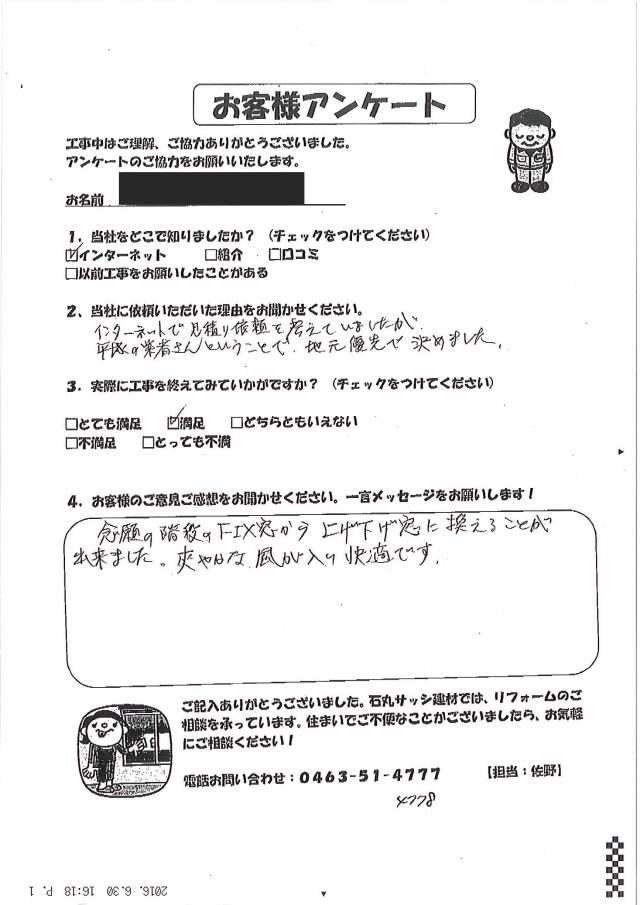 お客様アンケート
工事中はご理解、ご協力ありがとうございました。
アンケートのご協力をお願いいたします。
お名前
1. 当社をどこで知りましたか？（チェックをつけてください）
☑インターネット　□紹介　□口コミ
□以前工事をお願いしたことがある
2、当社に依頼いただいた理由をお聞かせください。
インターネットで見積り依頼を考えていましたが、
平塚の業者さんということで、地元優先で決めました。
3．実際に工事を終えてみていかがですか？（チェックをつけてください）
□とても満足　☑満足　□どちらともいえない
□不満足　□とっても不満
4．お客様のご意見ご感想をお聞かせください。一言メッセージをお願いします！
念願の階段のFIX窓から上げ下げ窓に換えることが
出来ました。爽やかな風が入り快適です。
ご記入ありがとうございました。石丸サッシ建材では、リフォームのご
相談を承っています。住まいでご不便なことがございましたら、お気軽
にご相談ください！
電話お問い合わせ：0463-51-4777　【担当：佐野】
4778
2016. 6.30 16:18 P. 1